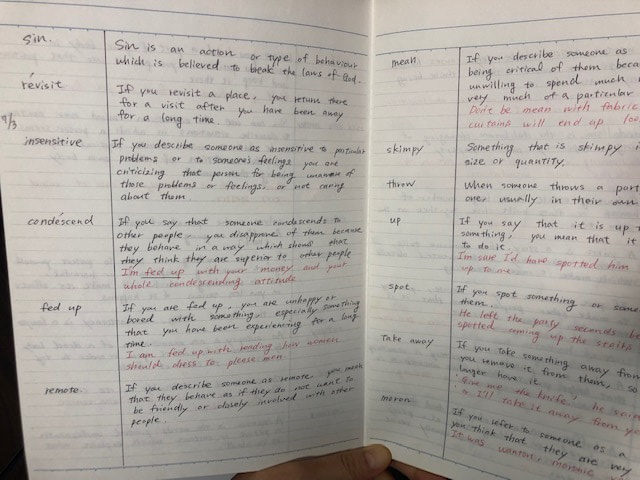 Sin.
Sin is an action or type of behaviour
which is believed to break the laws of God.
révisit
If you revisit a place, you return there
for a visit after you have been away
for a long time.
9/3
insensitive
If you describe someone as insensitive to particular
problems or to someone's feelings, you are
criticizing that person for being unaware of
those problems or feelings, or not caring
about them.
condéscend
If you say that someone condescends to
other people, you disapprove of them because
they behave in a way which shows that
they think they are superior to other people
I'm fed up with your money and your
whole condescending attitude
fed up
If you are fed up, you are unhappy or
bored with something, especially something
that you have been experiencing for a long
time.
I am fed up with reading how women
should dress to please men.
remote.
If you describe someone as remote, you mean
that they behave as if they do not want to
be friendly or closely involved with other
people.
mean
If you describe someone as
being critical of them beca
unwilling to spend much
very much of a particular
Don't be mean with fabric
curtains will end up loo
skimpy
Something that is skimpy i
size or quantity.
throw
When someone throws a part
one, usually in their own
up
If you say that it is up t
something, you mean that it
to do it.
I'm sure I'd have spotted him
up to me.
spot
If you spot something or some
them.
He left the party seconds be
spotted coming up the stairs
Take away
If you take something away from
you remove it from them, so
longer have it.
"Give me the knife," he sai
"or I'll take it away from yo
moron
If you refer to someone as a
you think that they are very
It was wanton, moronic